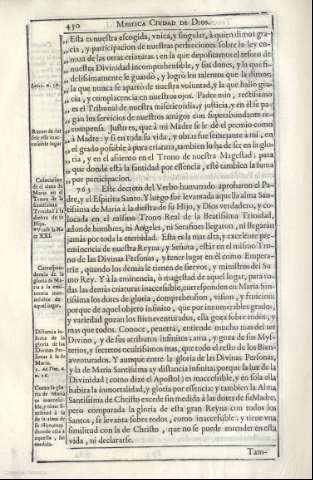 450 MYSTICA CIUDAD DE DIOS.
,, Esta es nuestra escogida, vnica, y singular, à quien dimos gra-
,, cia, y participacion de nuestras perfecciones sobre la ley co-
,, mun de las otras criaturas; en la que depositamos el tesoro de
,, nuestra Divinidad incomprehensible, y sus dones, y la que fi-
,, delissimamente le guardò, y logrò los talentos que la dimos;
,, la que nunca se apartò de nuestra voluntad, y la que hallò gra-
,, cia, y complacencia en nuestros ojos. Padre mio, rectissimo
,, es el Tribunal de nuestra misericordia, y justicia, y en èl se pa-
,, gan los servicios de nuestros amigos con superabundante re-
,, compensa. Justo es, que à mi Madre se le dè el premio como
,, à Madre: y si en toda su vida, y obras fue semejante à mi, en
,, el grado possible à pura criatura, tambien lo ha de ser en la glo-
,, ria, y en el assiento en el Trono de nuestra Magestad, para
,, que donde està la santidad por essencia, estè tambien la suma
,, por participacion.
763 Este decreto del Verbo humanado aprobaron el Pa-
dre, y el Espiritu Santo. Y luego fue levantada aquella alma San-
tissima de Maria à la diestra de su Hijo, y Dios verdadero, y co-
locada en el mismo Trono Real de la Beatissima Trinidad,
adonde hombres, ni Angeles, ni Serafines llegaron, ni llegaràn
jamàs por toda la eternidad. Esta es la mas alta, y excelente pre-
eminencia de nuestra Reyna, y Señora, estàr en el mismo Tro-
no de las Divinas Personas, y tener lugar en èl como Empera-
triz, quando los demàs le tienen de siervos, y ministros del Su-
mo Rey. Y à la eminencia, ò magestad de aquel lugar, para to-
das las demàs criaturas inaccessible, corresponden en Maria San-
tissima los dotes de gloria, comprehension, vision, y fruicion:
porque de aquel objeto infinito, que por innumerables grados,
y variedad gozan los Bienaventurados, ella goza sobre todos, y
mas que todos. Conoce, penetra, entiende mucho mas del ser
Divino, y de sus atributos infinitos; ama, y goza de sus Myste-
rios, y secretos ocultissimos mas, que todo el resto de los Bien-
aventurados. Y aunque entre la gloria de las Divinas Personas,
y la de Maria Santissima ay distancia infinita: porque la luz de la
Divinidad (como dize el Apostol) es inaccessible, y en sola ella
habita la inmortalidad, y gloria por essencia; y tambien la Alma
Santissima de Christo excede sin medida à las dotes de su Madre,
pero comparada la gloria de esta gran Reyna con todos los
Santos, se levanta sobre todos, como inaccessible, y tiene vna
similitud con la de Christo, que no se puede entender en esta
vida, ni declararse.
Tam-